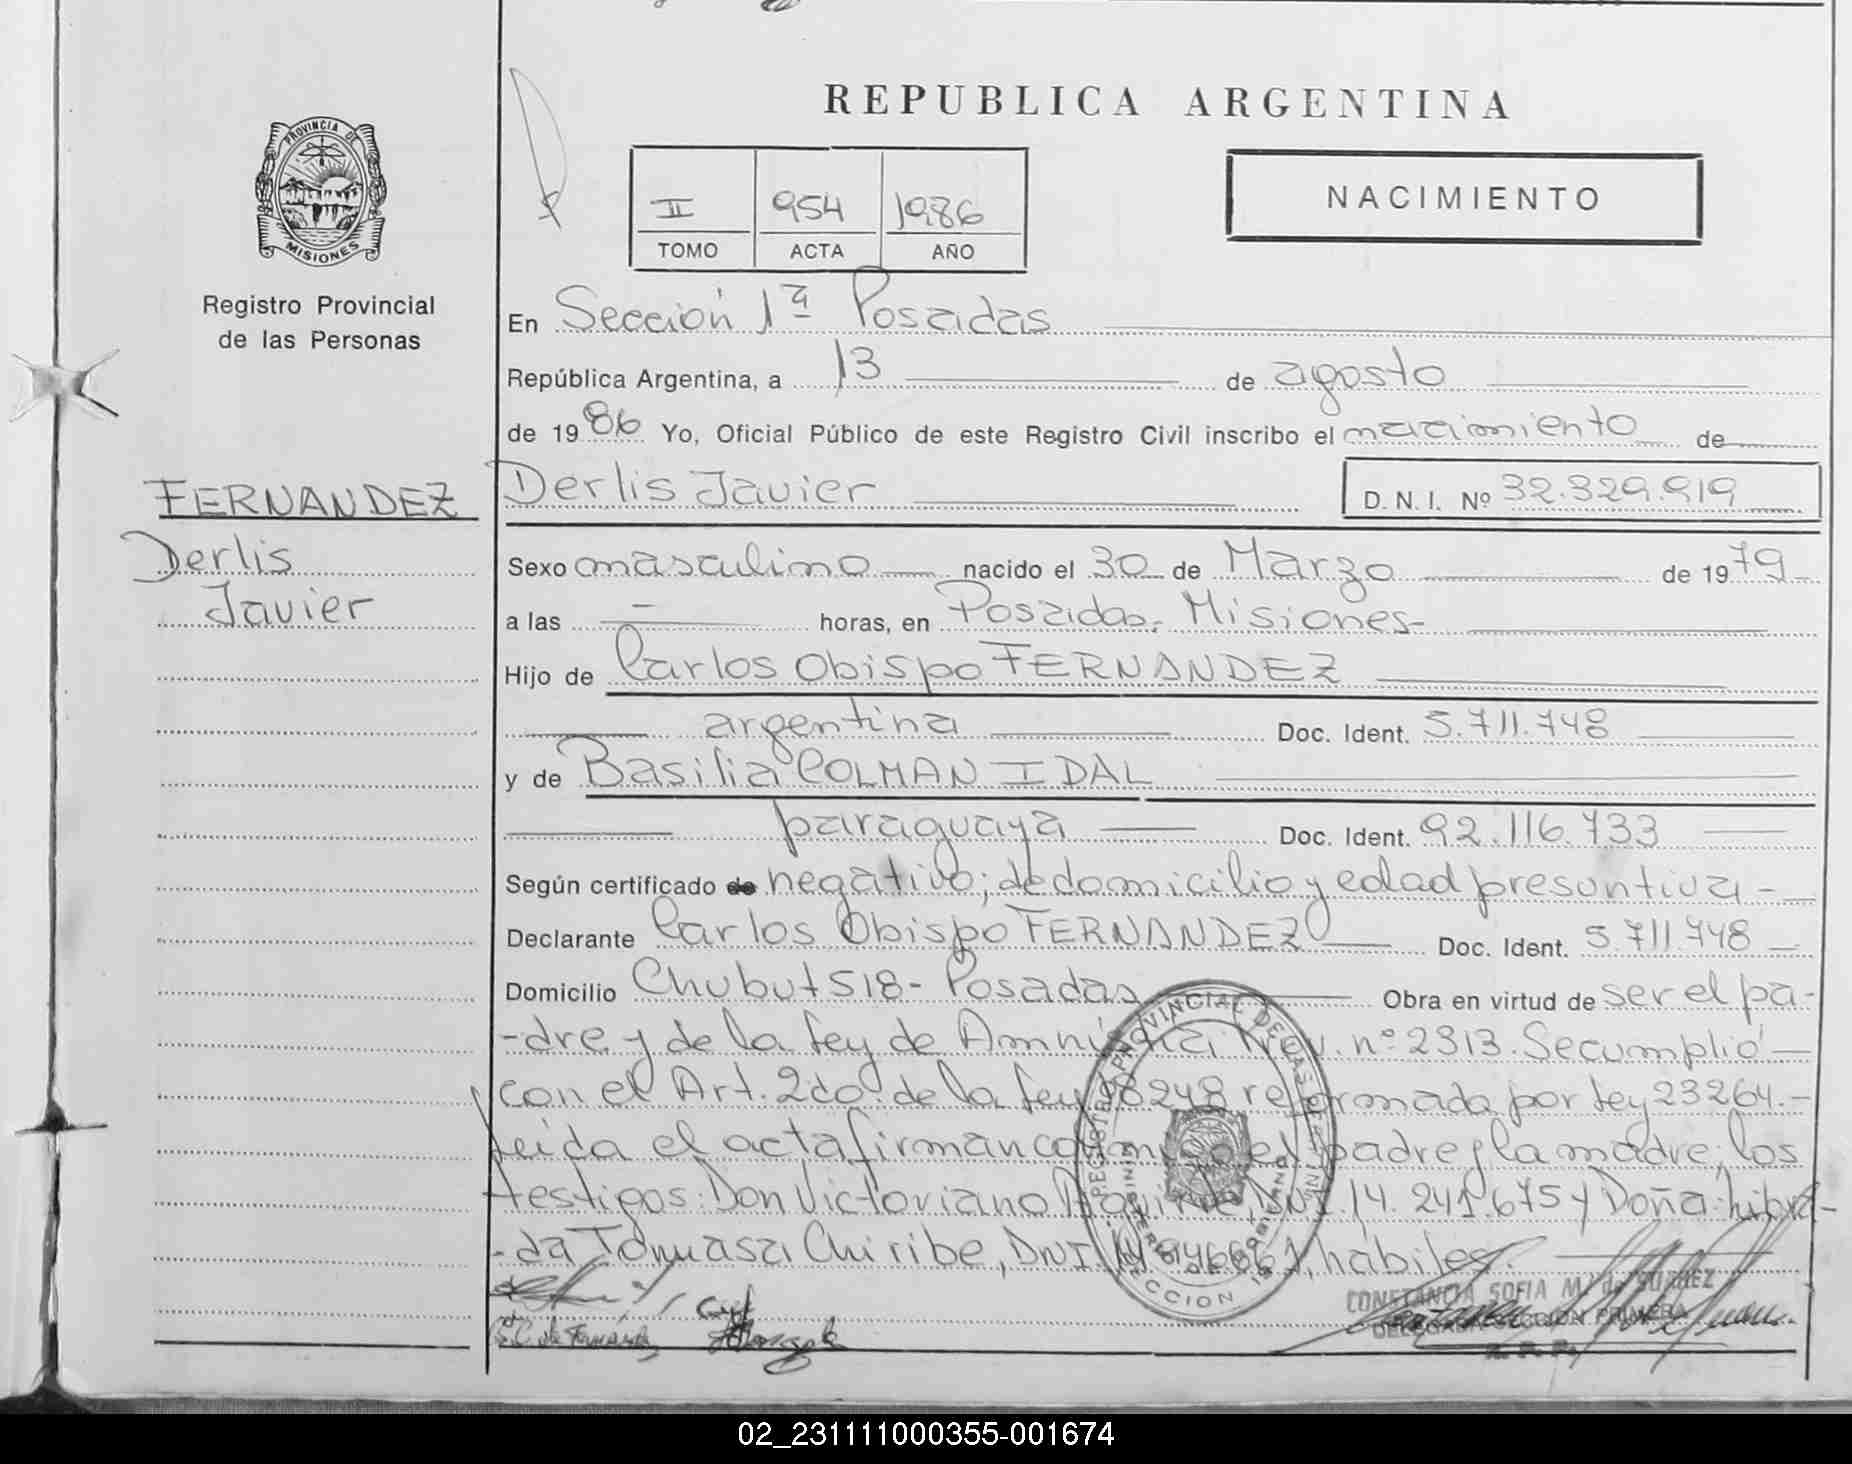 REPUBLICA ARGENTINA
NACIMIENTO
II 954 1986
TOMO ACTA AÑO
PROVINCIA DE
MISIONES
Registro Provincial
de las Personas
FERNANDEZ
Derlis
Javier
En Sección 1ª Posadas
República Argentina, a 13 de agosto
de 1986 Yo, Oficial Público de este Registro Civil inscribo el nacimiento de
Derlis Javier D. N. I. Nº 32.329.919
Sexo masculino nacido el 30 de Marzo de 1979
a las — horas, en Posadas, Misiones-
Hijo de Carlos Obispo FERNANDEZ
argentina Doc. Ident. 5.711.748
y de Basilia COLMAN IDAL
paraguaya Doc. Ident. 92.116.733
Según certificado de negativo; de domicilio y edad presuntiva-
Declarante Carlos Obispo FERNANDEZ Doc. Ident. 5.711.748
Domicilio Chubut 518- Posadas Obra en virtud de ser el pa-
-dre y de la Ley de Amnistia Prov. nº 2313. Se cumplió
con el Art. 2do. de la Ley 18248 reformada por Ley 23264.-
Leida el acta firman conmigo el padre y la madre; los
testigos: Don Victoriano Aguirre, DNI. 14.241.675 y Doña Libra-
-da Tomasa Chiribe, DNI hábiles.
CONSTANCIA SOFIA M. de SUAREZ
DELEGADA SECCION PRIMERA
R. P. P.
02_231111000355-001674